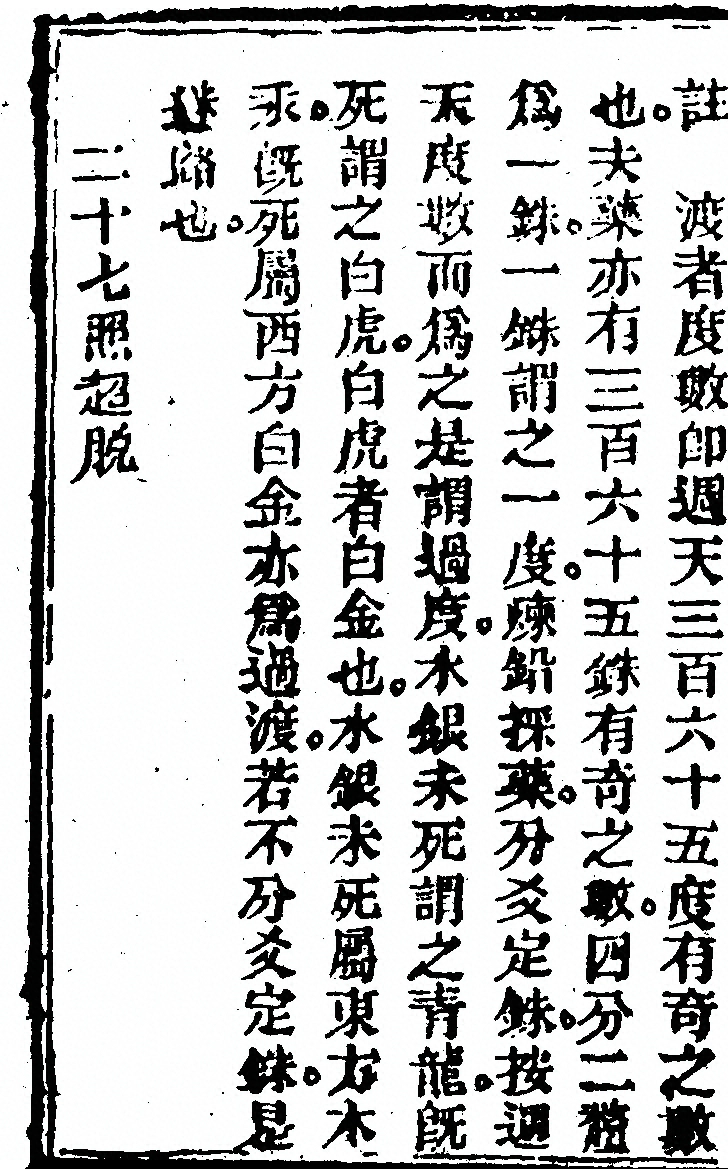 註　渡者度數卽週天三百六十五度有奇之數
也。夫藥亦有三百六十五銖有奇之數。四分二體
爲一銖。一銖謂之一度。煉鉛採藥。分爻定銖。按週
天度数而爲之是謂過度。水銀未死謂之青龍。旣
死謂之白虎。白虎者白金也。水銀未死屬東方木
汞。旣死屬西方白金亦爲過渡。若不分爻定銖。是
迷 也。
二十七照超脱